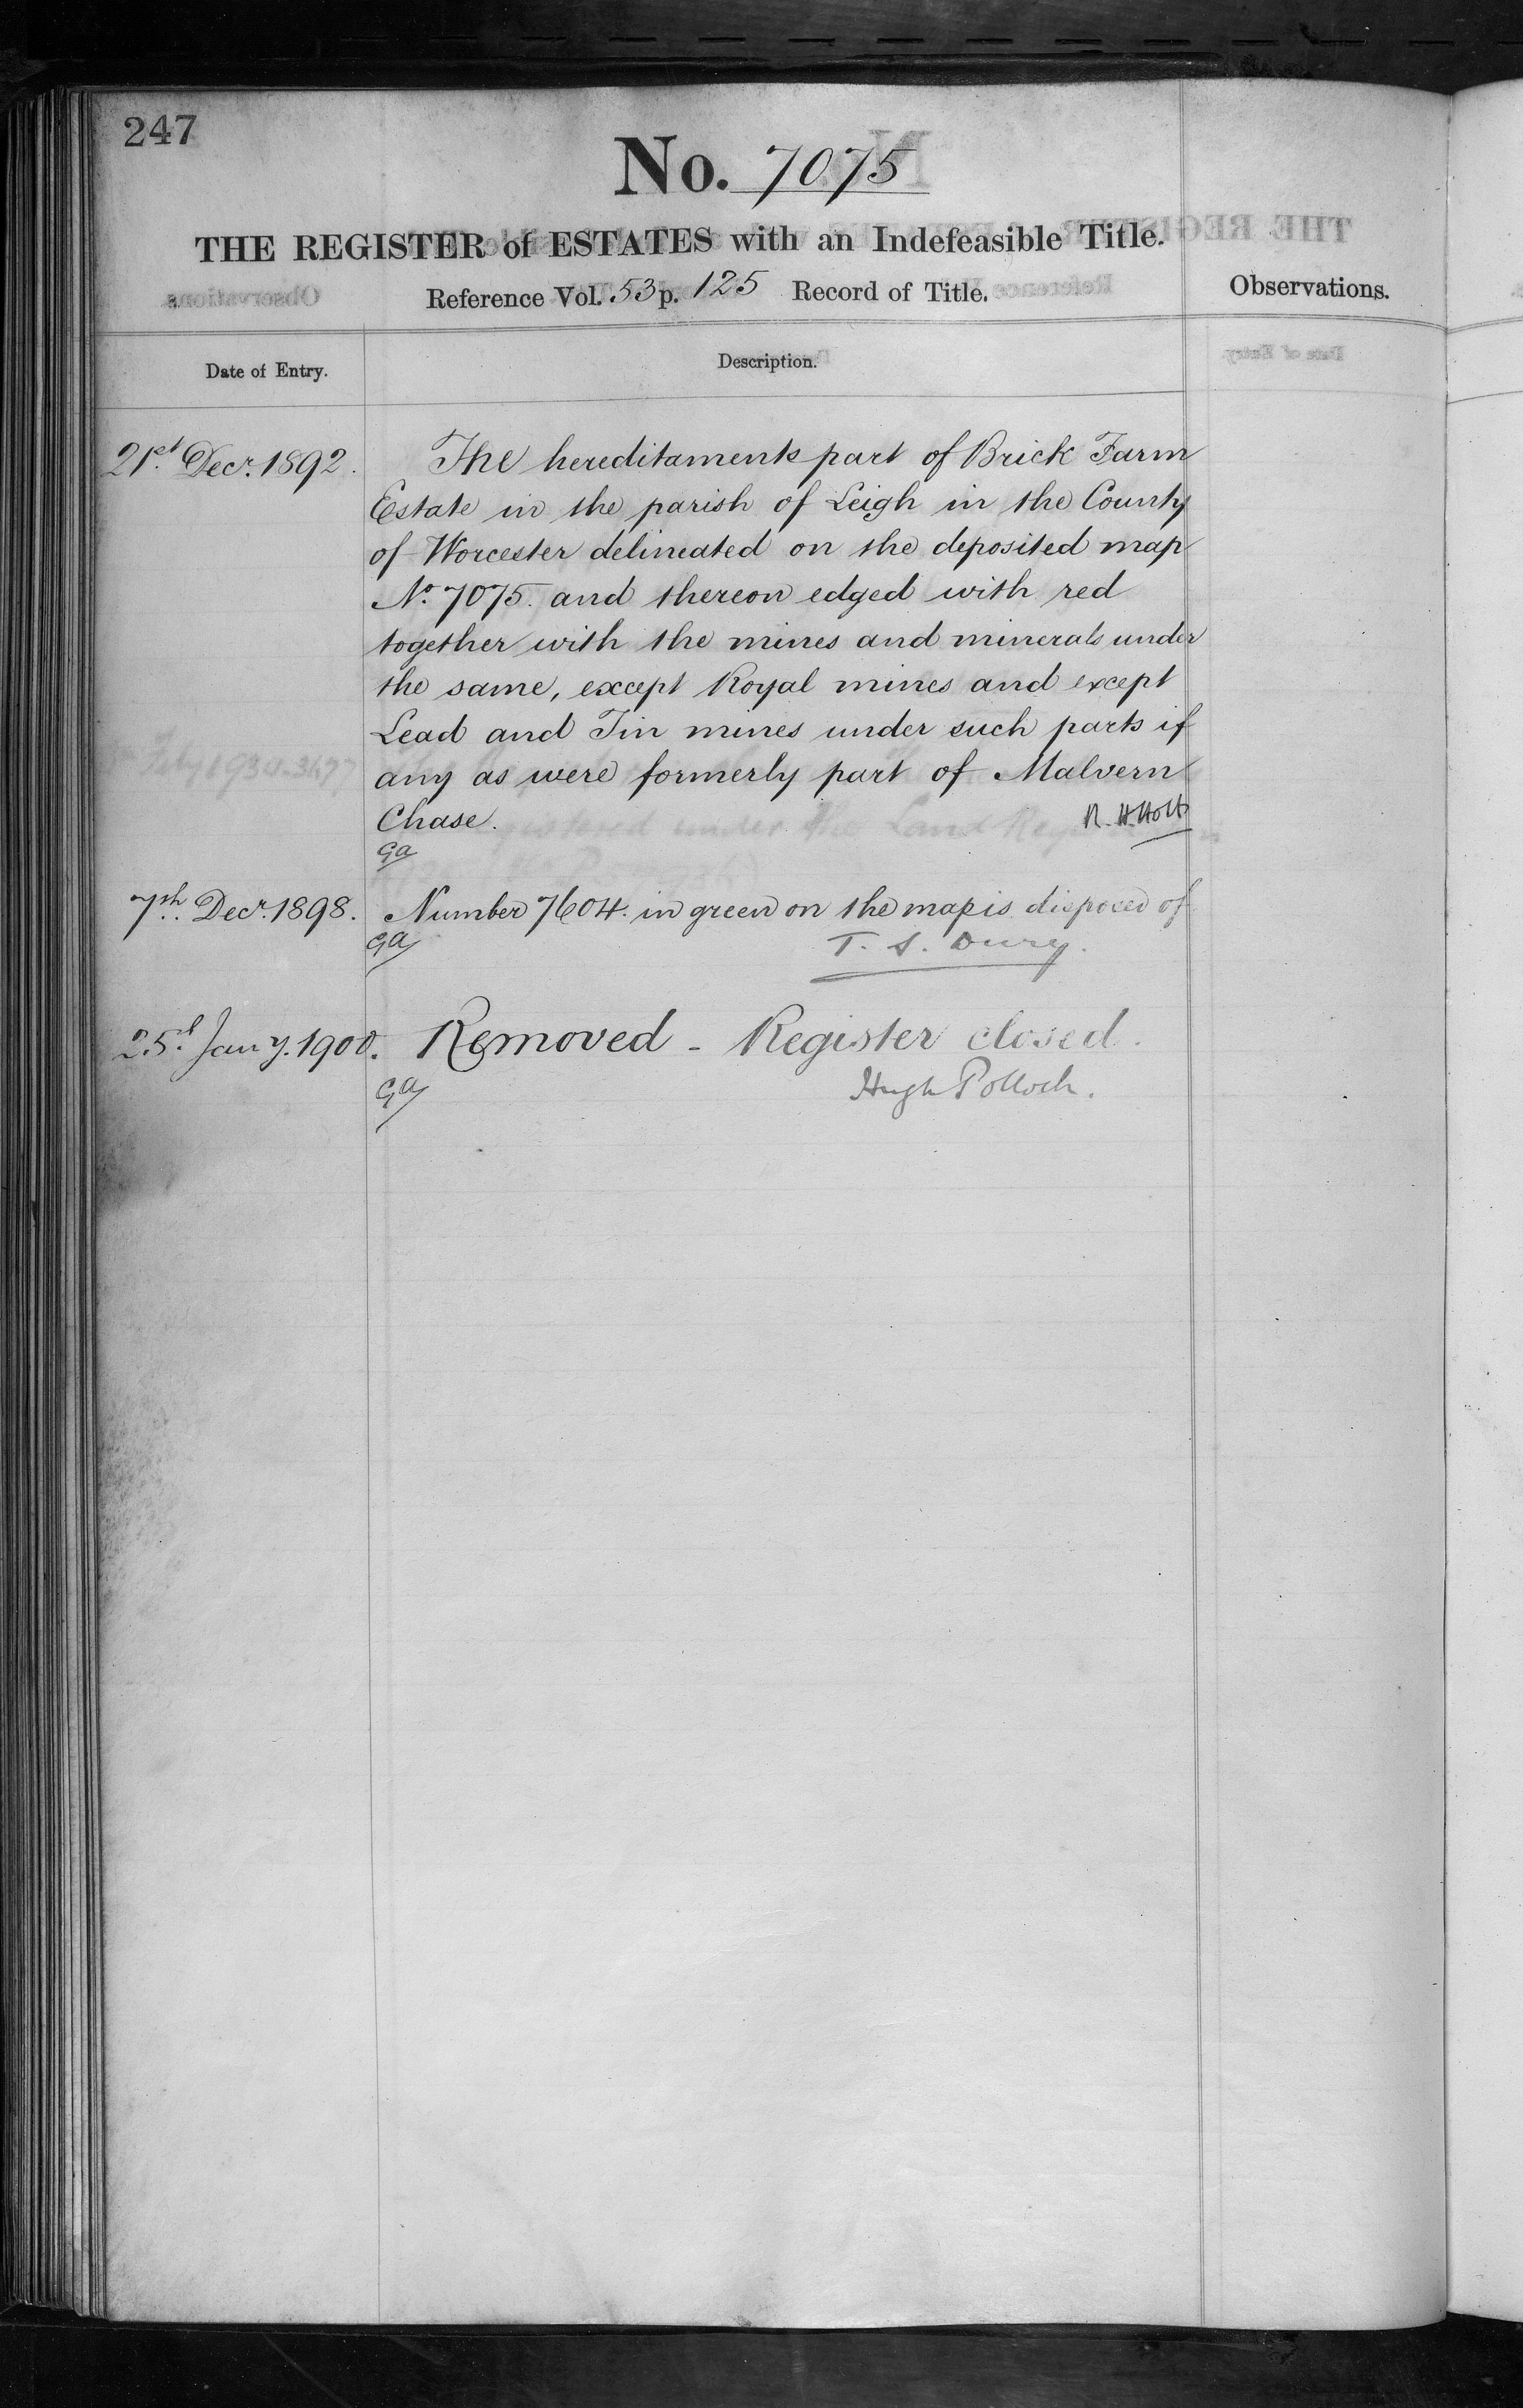 247
No. 7075
THE REGISTER of ESTATES with an Indefeasible Title.
Reference Vol. 53 p. 125 Record of Title.
Observations.
Date of Entry.
Description.
21st Decr. 1892.
The hereditaments part of Brick Farm
Estate in the parish of Leigh in the County
of Worcester delineated on the deposited map
No. 7075. and thereon edged with red
together with the mines and minerals under
the same, except Royal mines and except
Lead and Tin mines under such parts if
any as were formerly part of Malvern
Chase.
R. H. Holt
Ga
7th Decr. 1898.
Number 7604. in green on the map is disposed of
Ga
T. S. Dury.
25th Jany. 1900.
Removed - Register closed.
Ga
Hugh Pollock.